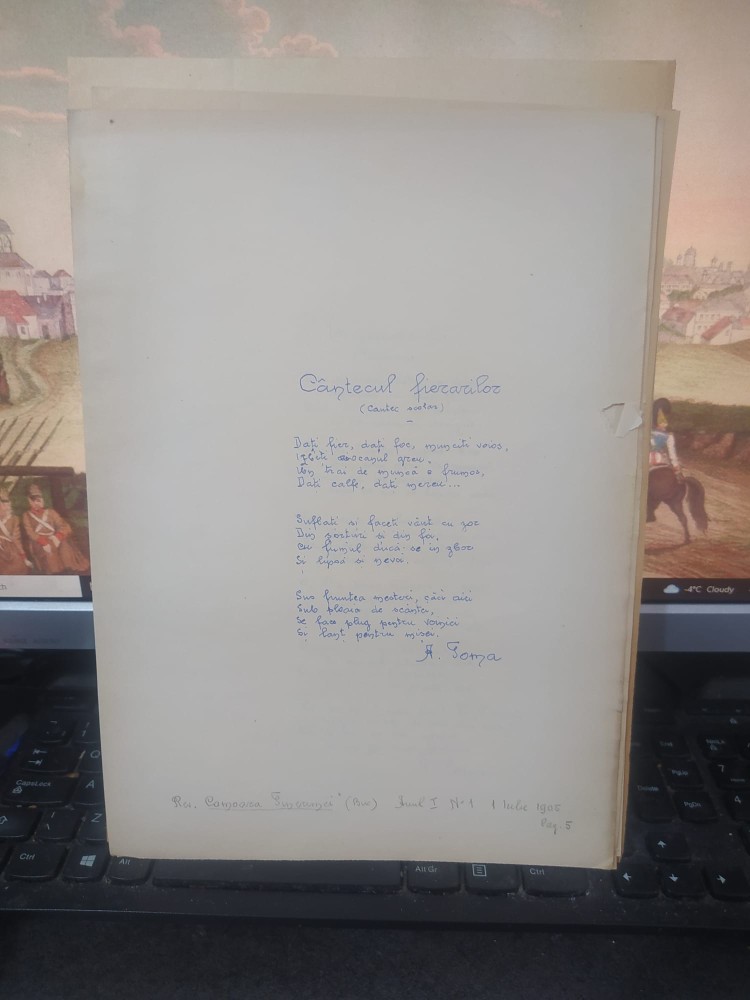 Cântecul fierarilor
(Cantec scolar)
Dați fier, dați foc, munciti voios,
Izbiti ciocanul greu.
Un trai de muncă e frumos,
Dați calfe, dati mereu...
Suflati si faceti vânt cu zor
Din sorturi si din foi,
cu fumul ducă-se in zbor
Si lipsă si nevoi.
Sus fruntea mesteri, căci aici
Sub ploaia de scântei,
Se face plug pentru voinici
Si lanț pentru misei.
A. Toma
Rev. Comoara Tinerimei" (Buc) Anul I Nº 1 1 Iulie 1905
Pag. 5
-4°C Cloudy
CapsLock
Q
A
Z
Ctrl
Alt
Alt Gr
Ctrl
PgDn
7